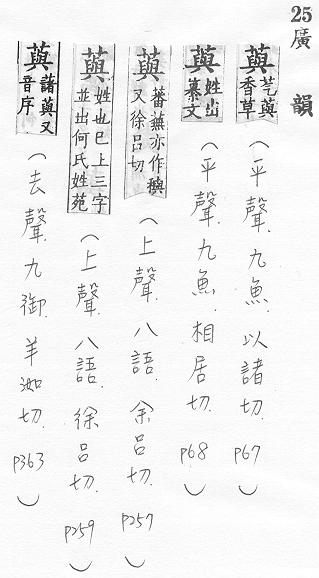 25 廣韻
藇 芑藇香草 (平聲九魚. 以諸切. P67)
藇 姓出纂文 (平聲九魚. 相居切. P68)
藇 蕃蕪亦作穥又徐呂切 (上聲. 八語. 余呂切. P257)
藇 姓也已上三字並出何氏姓苑 (上聲. 八語. 徐呂切. P259)
藇 諸藇又音序 (去聲九御. 羊洳切. P363)